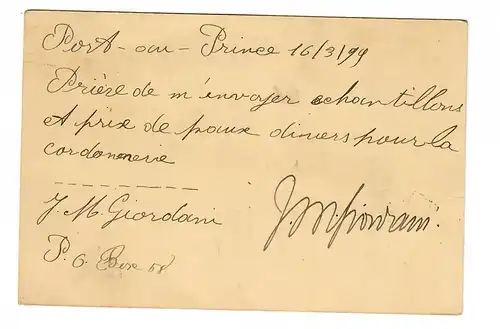 Port-au-Prince 16/3/99
Prière de m'envoyer echantillons
et prix de peaux divers pour la
cordonnerie
J. M. Giordani
J. M. Giordani.
P. O. Box 58